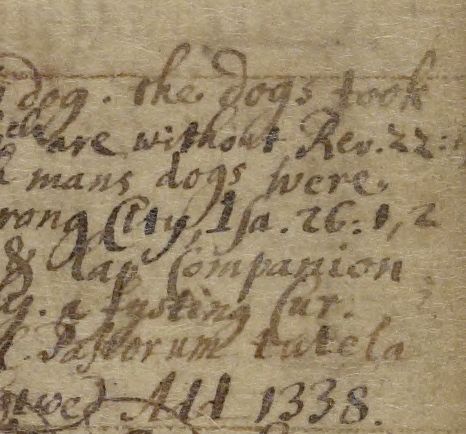 dog. the dogs took
are without Rev. 22:
mans dogs were
City, Isa. 26: 1, 2
& Lap Companion
a fysting Cur.
Pastorum tutela
Add 1338.